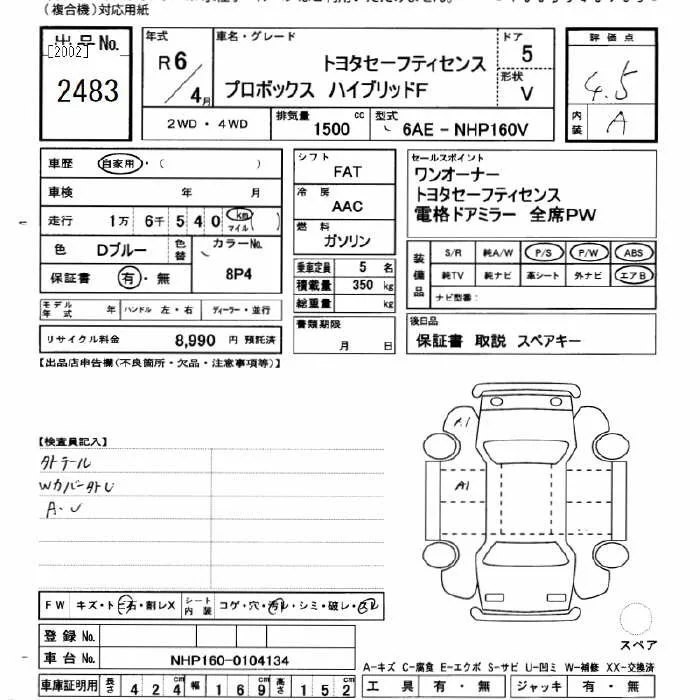 (複合機)対応用紙
出品No.
[2002]
2483
年式
R6/4月
車名・グレード
トヨタセーフティセンス
プロボックス ハイブリッドF
ドア
5
形状
V
評価点
4.5
内装
A
2WD・4WD
排気量 1500 cc
型式 6AE-NHP160V
車歴 自家用・( )
車検 年 月
走行 1万 6千 5 4 0 km マイル ( )
色 Dブルー 色替 カラーNo. 8P4
保証書 有・無
モデル年式 年 ハンドル 左・右 ディーラー・並行
リサイクル料金 8,990 円 預託済
シフト
FAT
冷房
AAC
燃料
ガソリン
乗車定員 5 名
積載量 350 kg
総重量 kg
書類期限
月 日
セールスポイント
ワンオーナー
トヨタセーフティセンス
電格ドアミラー 全席PW
装備品
S/R 純A/W P/S P/W ABS
純TV 純ナビ 革シート 外ナビ エアB
ナビ型番:
後日品
保証書 取説 スペアキー
【出品店申告欄(不良箇所・欠品・注意事項等)】
【検査員記入】
タトテール
Wカバー タトU
A・U
A1
A1
FW キズ・トビ石・削レX
シート内装 コゲ・穴・汚レ・シミ・破レ・スレ
登録No.
車台No. NHP160-0104134
車庫証明用 長さ 424 cm 幅 169 cm 高さ 152 cm
スペア
A-キズ C-腐食 E-エクボ S-サビ U-凹ミ W-補修 XX-交換済
工具 有・無 ジャッキ 有・無